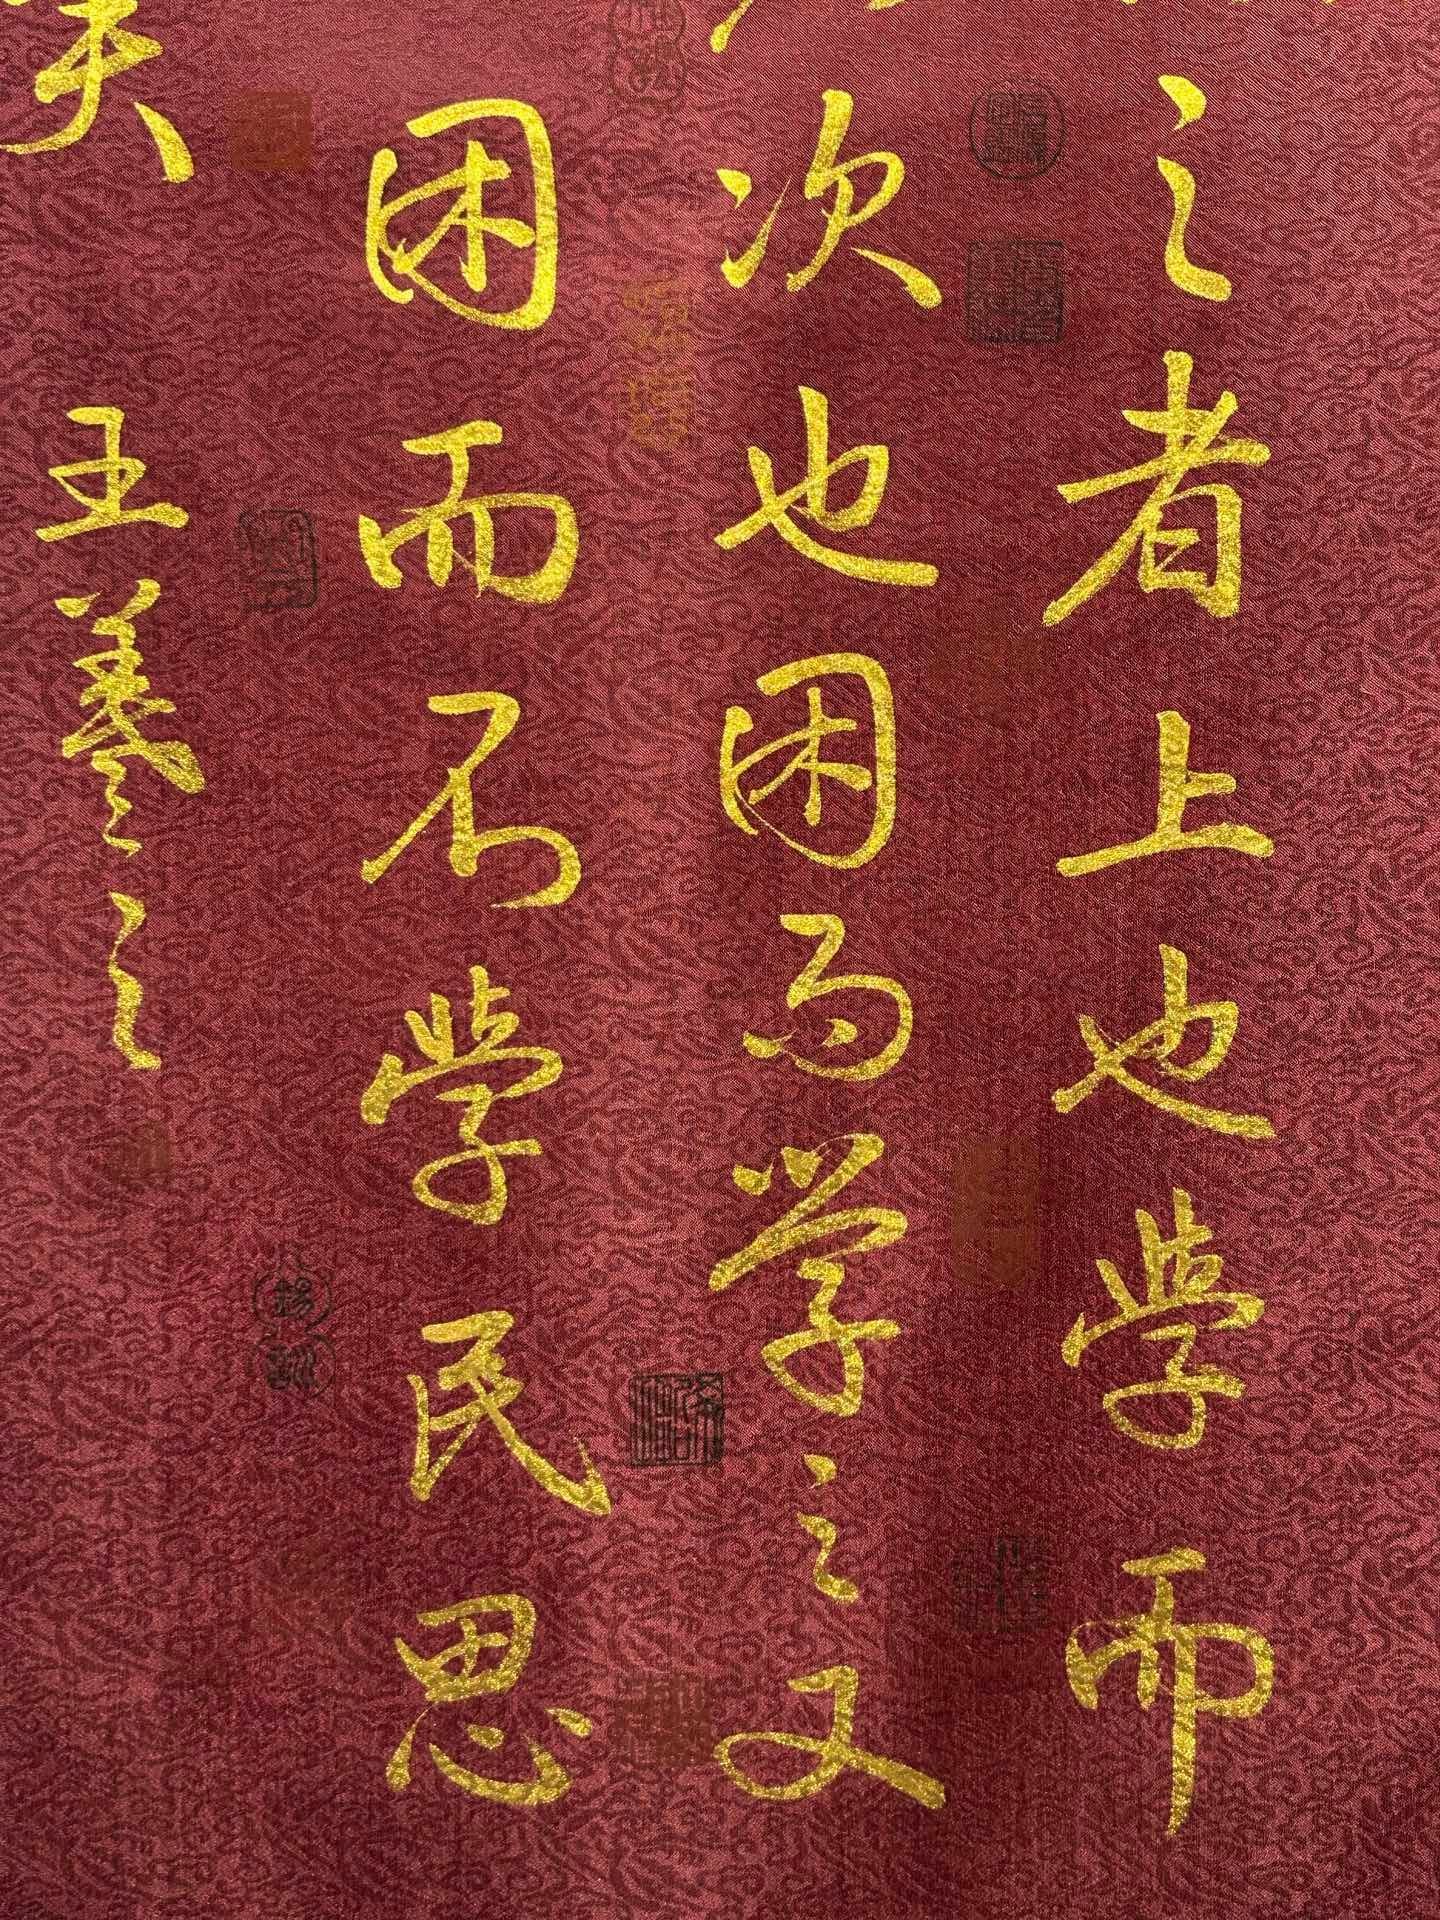 之者上也学而
次也困而学之又
困而不学民思
王羲之